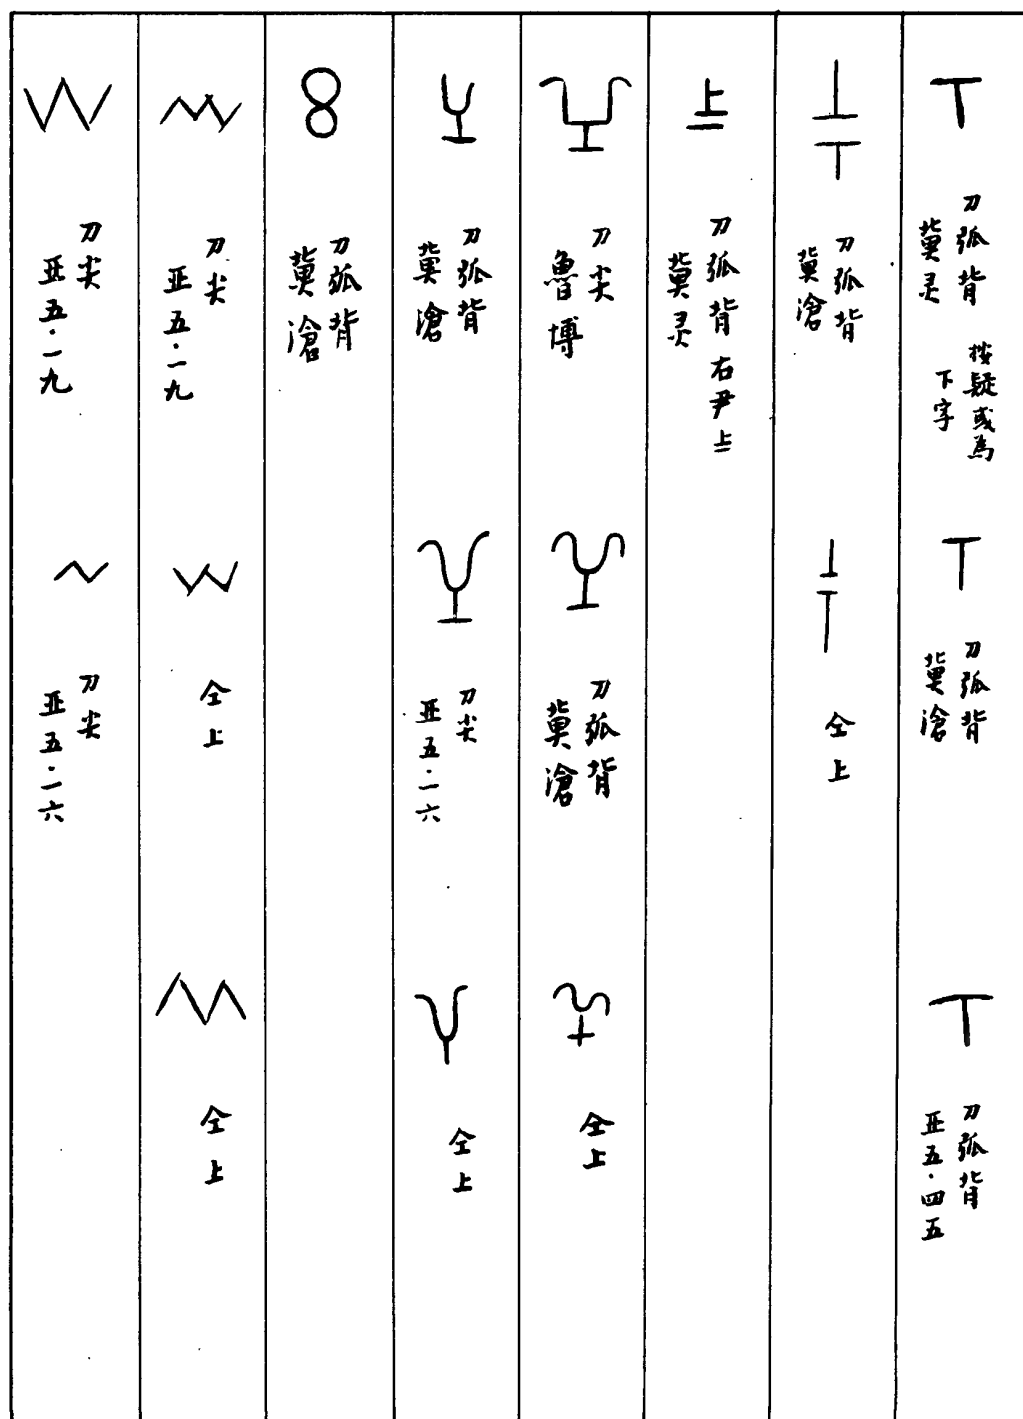 刀弧背
冀灵
按疑或為
下字
刀弧背
冀滄
刀弧背
亚五·四五
刀弧背
冀滄
仝上
刀弧背 右尹上二
冀灵
刀尖
魯博
刀弧背
冀滄
仝上
刀弧背
冀滄
刀尖
亚五·一六
仝上
刀弧背
冀滄
刀尖
亚五·一九
仝上
仝上
刀尖
亚五·一九
刀尖
亚五·一六